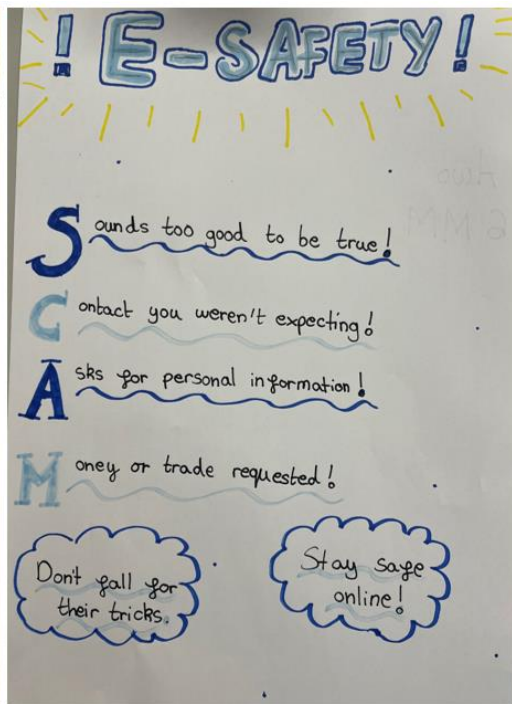 ! E-SAFETY !
Sounds too good to be true!
Contact you weren't expecting!
Asks for personal information!
Money or trade requested!
Don't fall for
their tricks.
Stay safe
online!